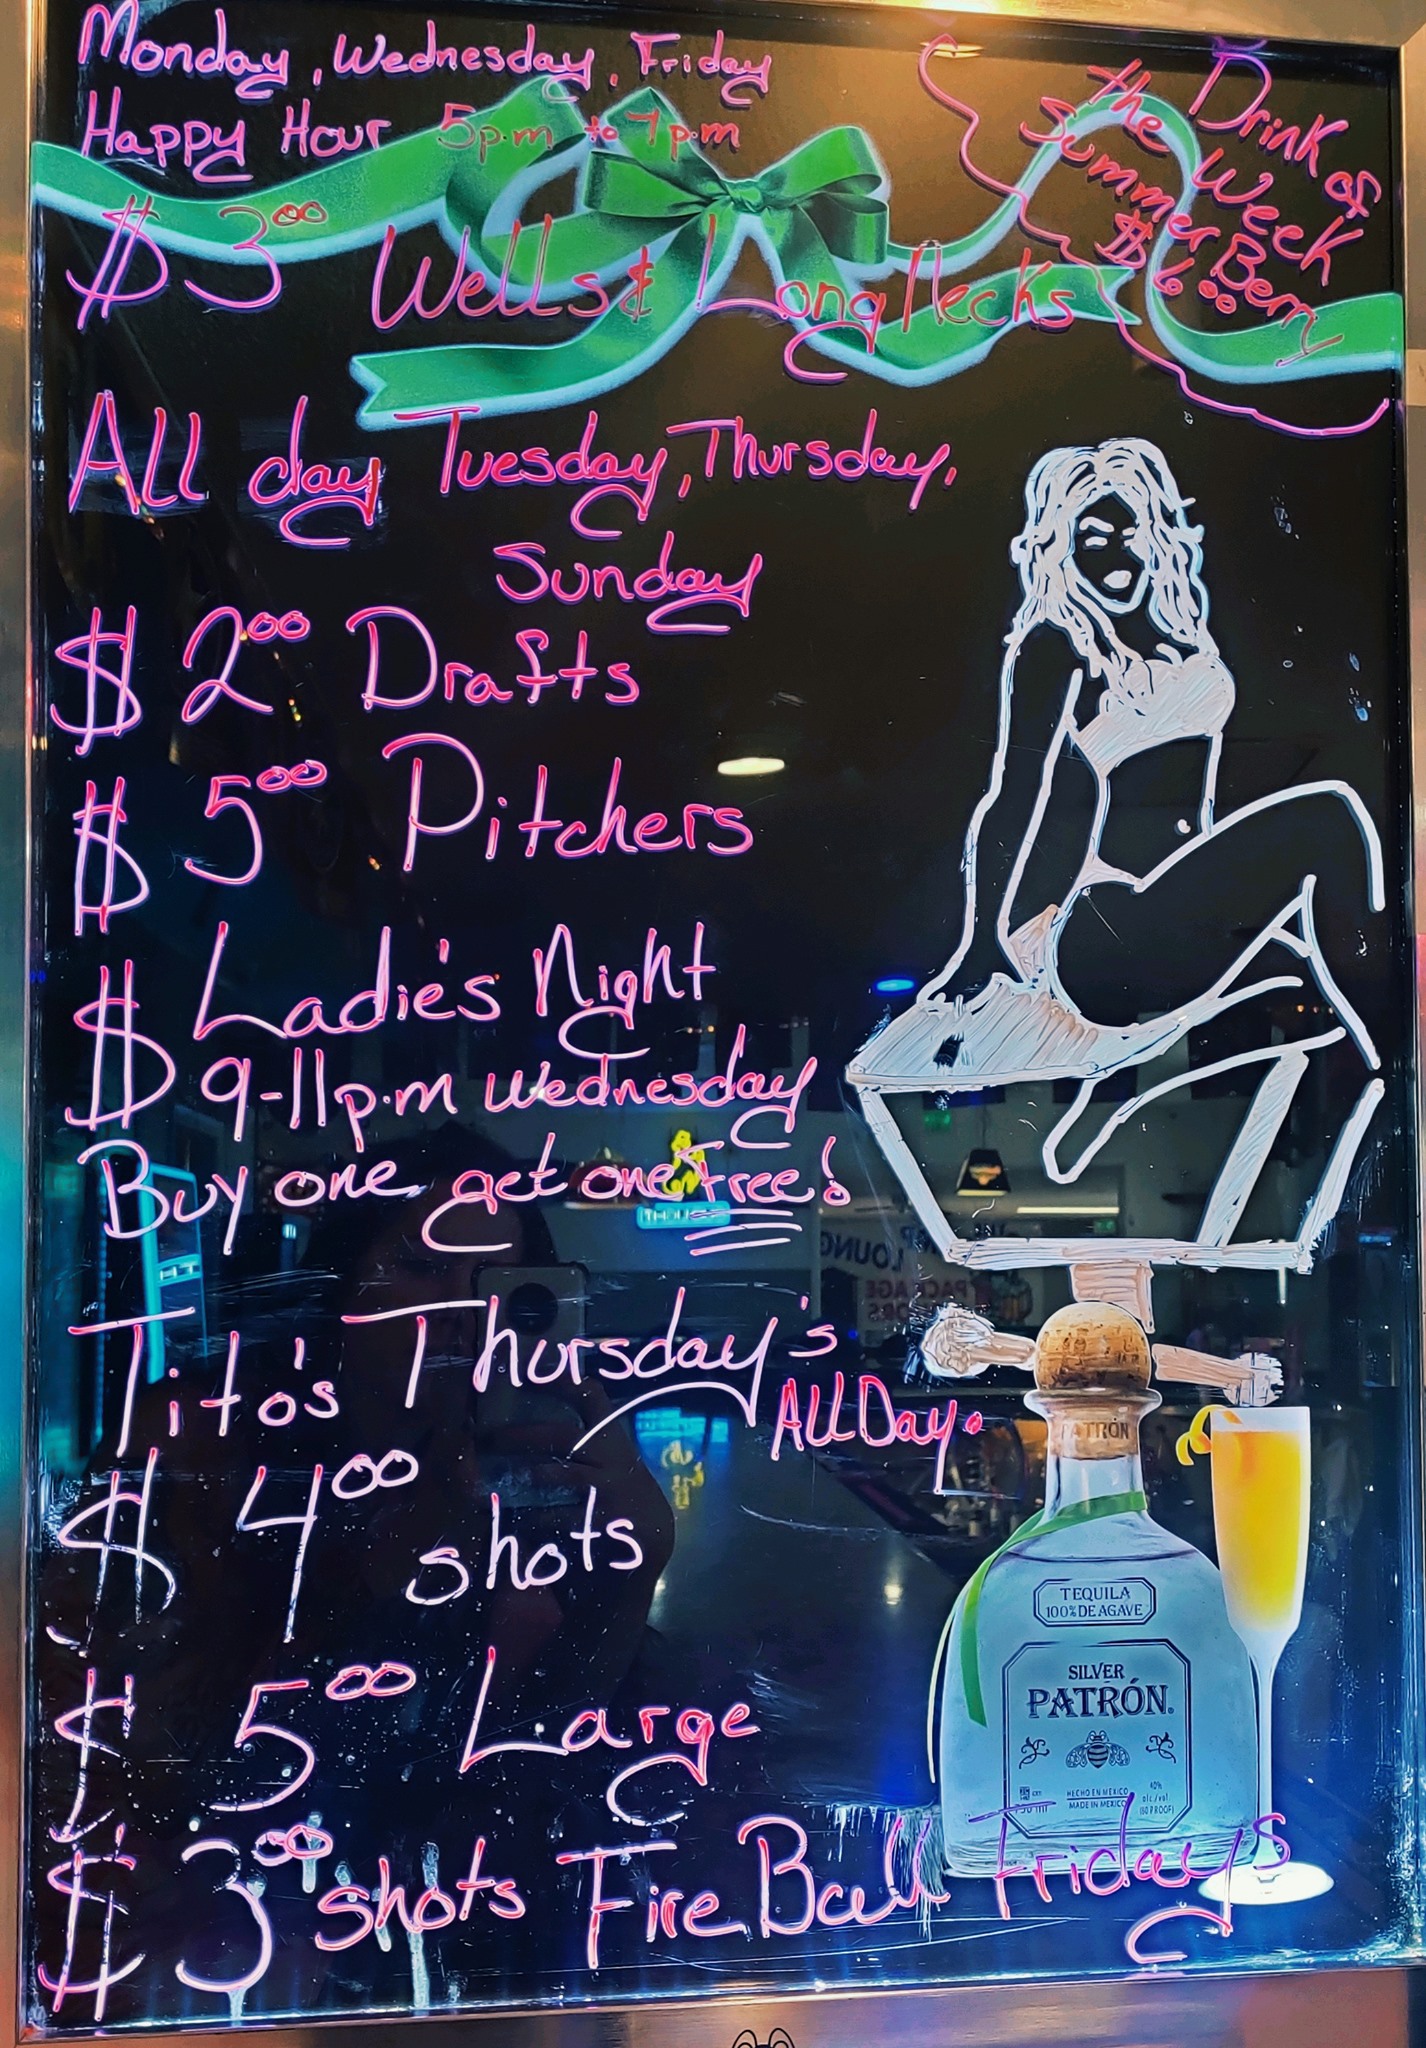 Monday, Wednesday, Friday
Happy Hour 5p.m to 7p.m
$3.00 Wells & Longnecks
Drink of
the Week
Summer Berry
$6.00
All day Tuesday, Thursday,
Sunday
$2.00 Drafts
$5.00 Pitchers
$ Ladie's Night
9-11p.m Wednesday
Buy one get one Free!
Tito's Thursday's
All Day.
$4.00 shots
$5.00 Large
$3.00 shots Fire Ball Fridays
PATRÓN
TEQUILA
100% DE AGAVE
SILVER
PATRÓN
HECHO EN MEXICO
MADE IN MEXICO
40%
alc./vol
(80 PROOF)
LOUNG
PACKAGE